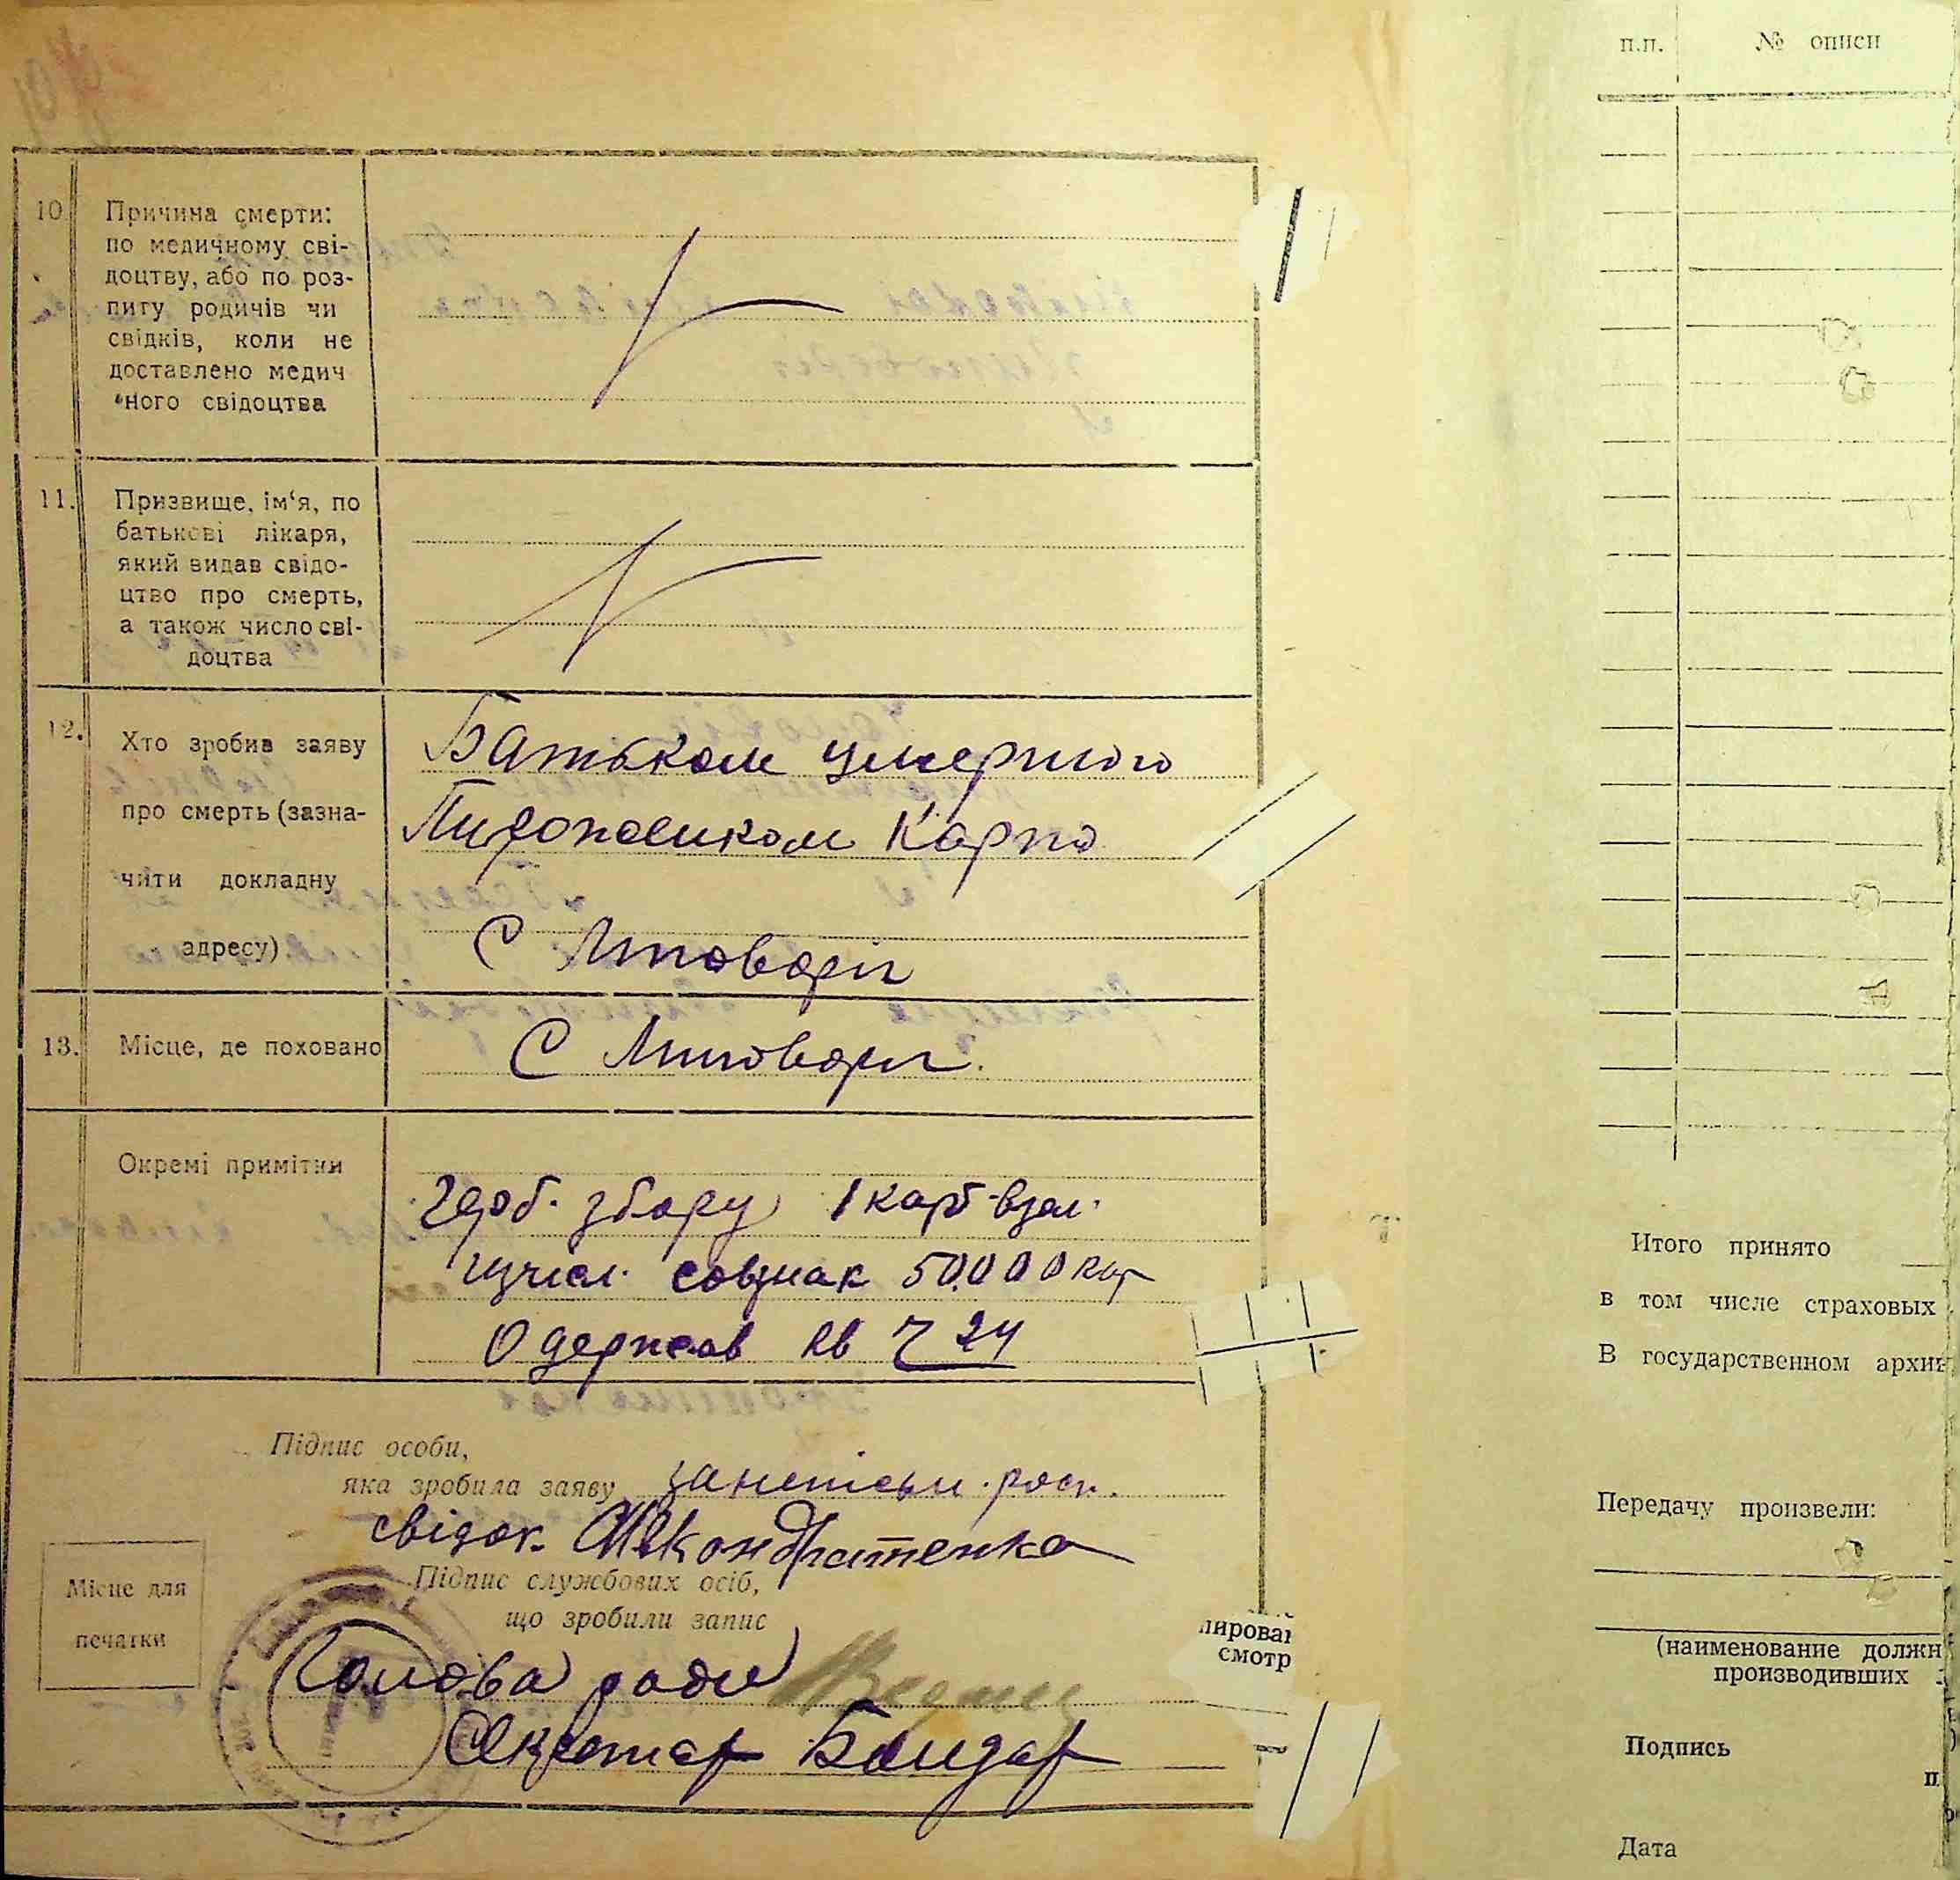 10. Причина смерти:
по медичному сві-
доцтву, або по роз-
питу родичів чи
свідків, коли не
доставлено медич
ного свідоцтва
11. Призвище, ім‘я, по
батькові лікаря,
який видав свідо-
цтво про смерть,
а також число сві-
доцтва
12. Хто зробив заяву
про смерть (зазна-
чити докладну
адресу)
Батьком умершого
Карпо
С Литовори
13. Місце, де поховано
С Литовори.
Окремі примітки
Герб. збору 1 карб. взал.
совзнак 50.000 кар
Одержав кв Ч 24
Підпис особи,
яка зробила заяву
свідок. Кондратенко
Підпис службових осіб,
що зробили запис
Місце для
печатки
Голова ради
Секретар Бондар
лироваı
смотр
п.п. № описи
Итого принято
в том числе страховых
В государственном архив
Передачу произвели:
(наименование должн
производивших
Подпись
Дата